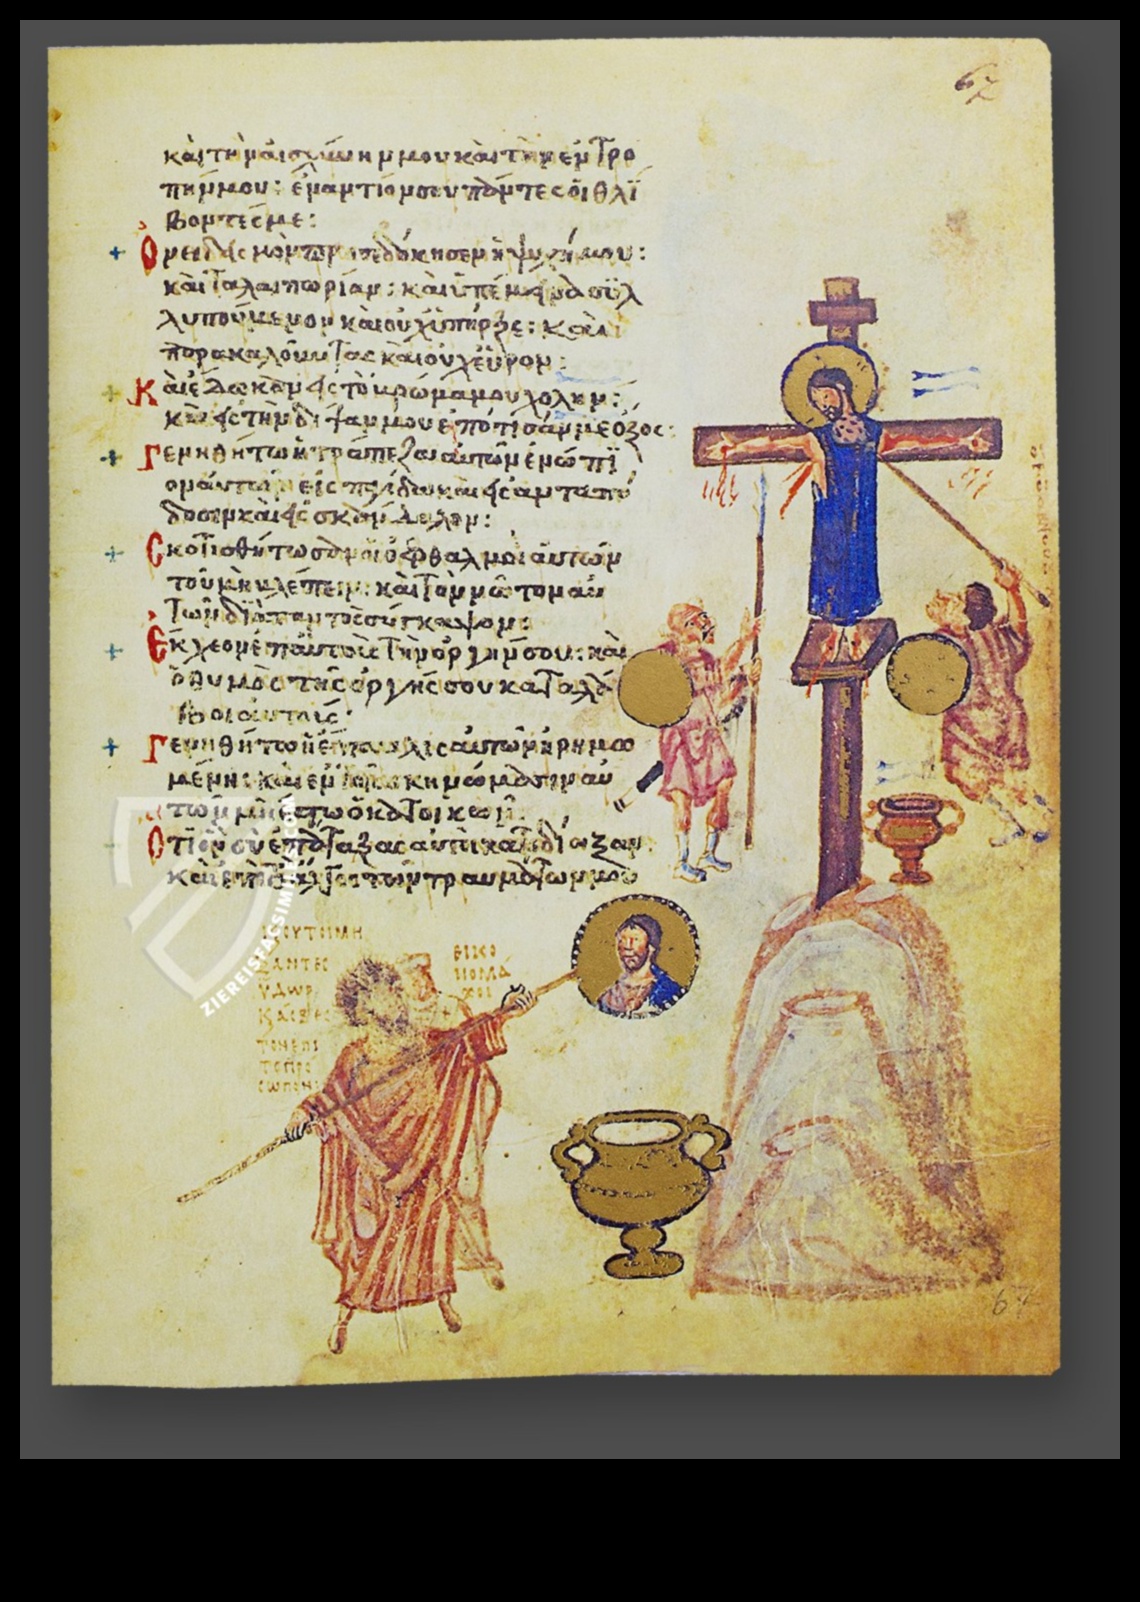 67
καὶ τὴν αἰσχύνην μου καὶ τὴν ἐντρο
πήν μου: ἐναντίον σου πάντες οἱ θλί
βοντές με:
Ονειδισμὸν προσεδόκησεν ἡ ψυχή μου:
καὶ ταλαιπωρίαν: καὶ ὑπέμεινα συλ
λυπούμενον καὶ οὐχ ὑπῆρξε: καὶ
παρακαλοῦντας καὶ οὐχ εὗρον:
Καὶ ἔδωκαν εἰς τὸ βρῶμα μου χολὴν:
καὶ εἰς τὴν δίψαν μου ἐπότισάν με ὄξος:
Γενηθήτω ἡ τράπεζα αὐτῶν ἐνώπι
ον αὐτῶν εἰς παγίδα καὶ εἰς ἀνταπό
δοσιν καὶ εἰς σκάνδαλον:
Σκοτισθήτωσαν οἱ ὀφθαλμοὶ αὐτῶν
τοῦ μὴ βλέπειν: καὶ τὸν νῶτον αὐ
τῶν διὰ παντὸς σύγκαμψον:
Εκχεον ἐπ αὐτοὺς τὴν ὀργήν σου: καὶ
ὁ θυμὸς τῆς ὀργῆς σου καταλά
βοι αὐτούς:
Γενηθήτω ἡ ἔπαυλις αὐτῶν ἠρημω
μένη: καὶ ἐν τοῖς σκηνώμασιν αὐ
τῶν μὴ ἔστω ὁ κατοικῶν:
Οτι ὃν σὺ ἐπάταξας αὐτοὶ κατεδίωξαν
καὶ ἐπὶ τὸ ἄλγος τῶν τραυμάτων μου
ΕΙΚΟ
ΝΟΜΑ
ΧΟΙ
ΥΔΩΡ
ΖΙEREISFACSIMILES.COM
67